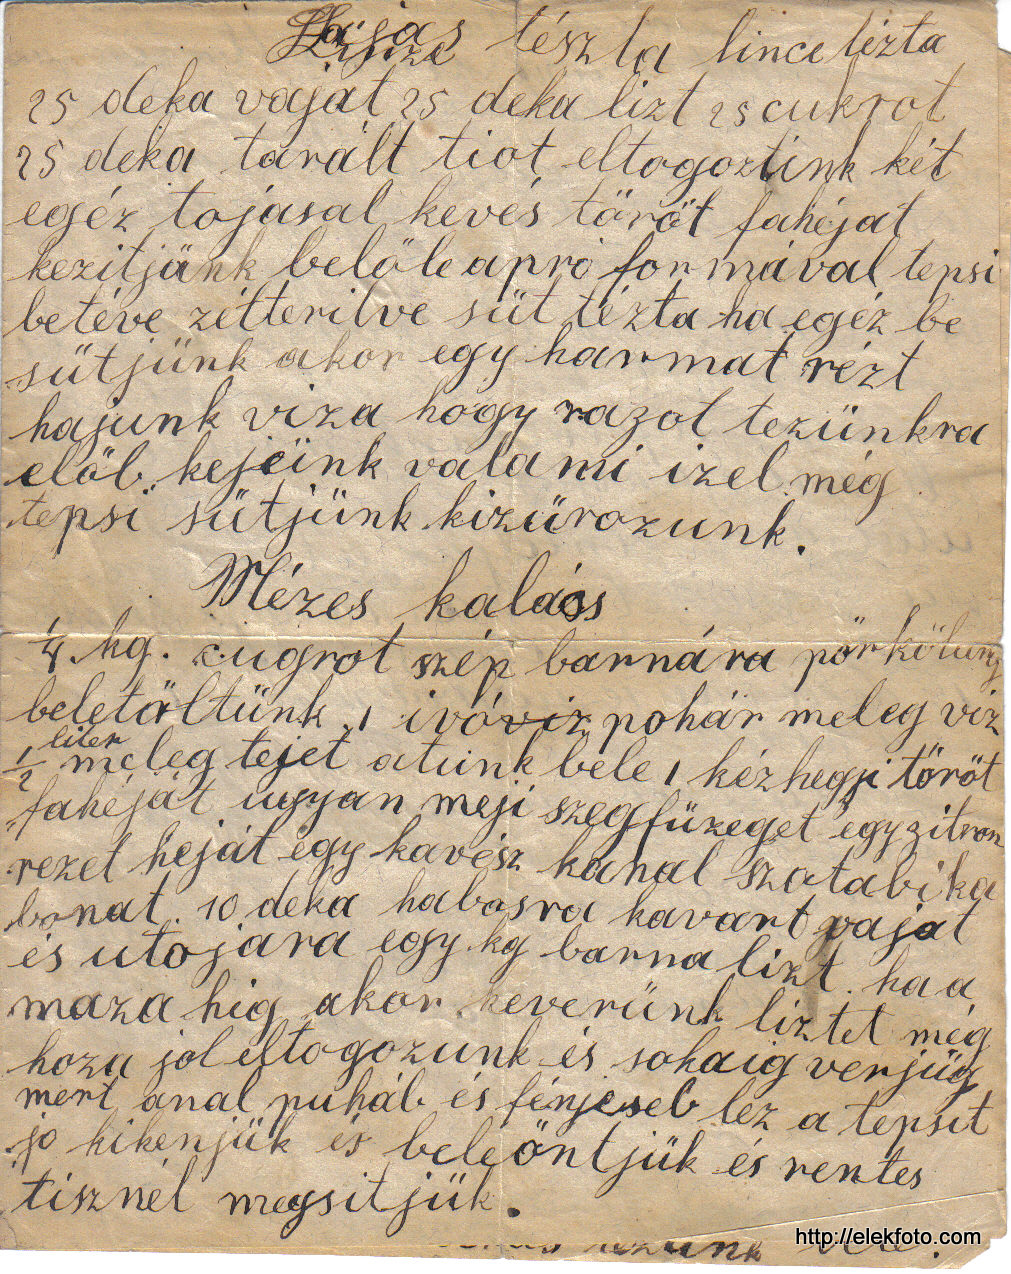 Lajas tészta lince tézta
25 deka vajat 25 deka lizt 25 cukrot
25 deka tarált tiot eltogoztink két
egéz tojásal kevés töröt fahéjat
kezitjünk belöle apró formával tepsi
betéve zétteritve süt tézta ha egéz be
sütjünk akor egy harmat rézt
hajunk viza hogy razot tezünkra
elöb kejeünk valami izel még
tepsi sütjünk kizürozunk.
Mézes kalács
1/4 kg. cugrot szép barnára pörkölünj
beletöltünk 1 ivóviz pohár meleg viz
1/2 liter meleg tejet atunk bele 1 kézhegji töröt
fahéját ugyan meji szegfüzeget egy zitron
rezel héját egy kavész kanal szatabika
bonat. 10 deka habosra kavart vajat
és utojára egy kg barna lizt. ha a
maza hig akor keverünk liztet még
hozu jól eltogozunk és sokaig verjüg
mert anal puháb és fénjeseb lez a tepsit
jo kikenjük és beleöntjük és rentes
tisznél megsitjük.
tezünk
http://elekfoto.com